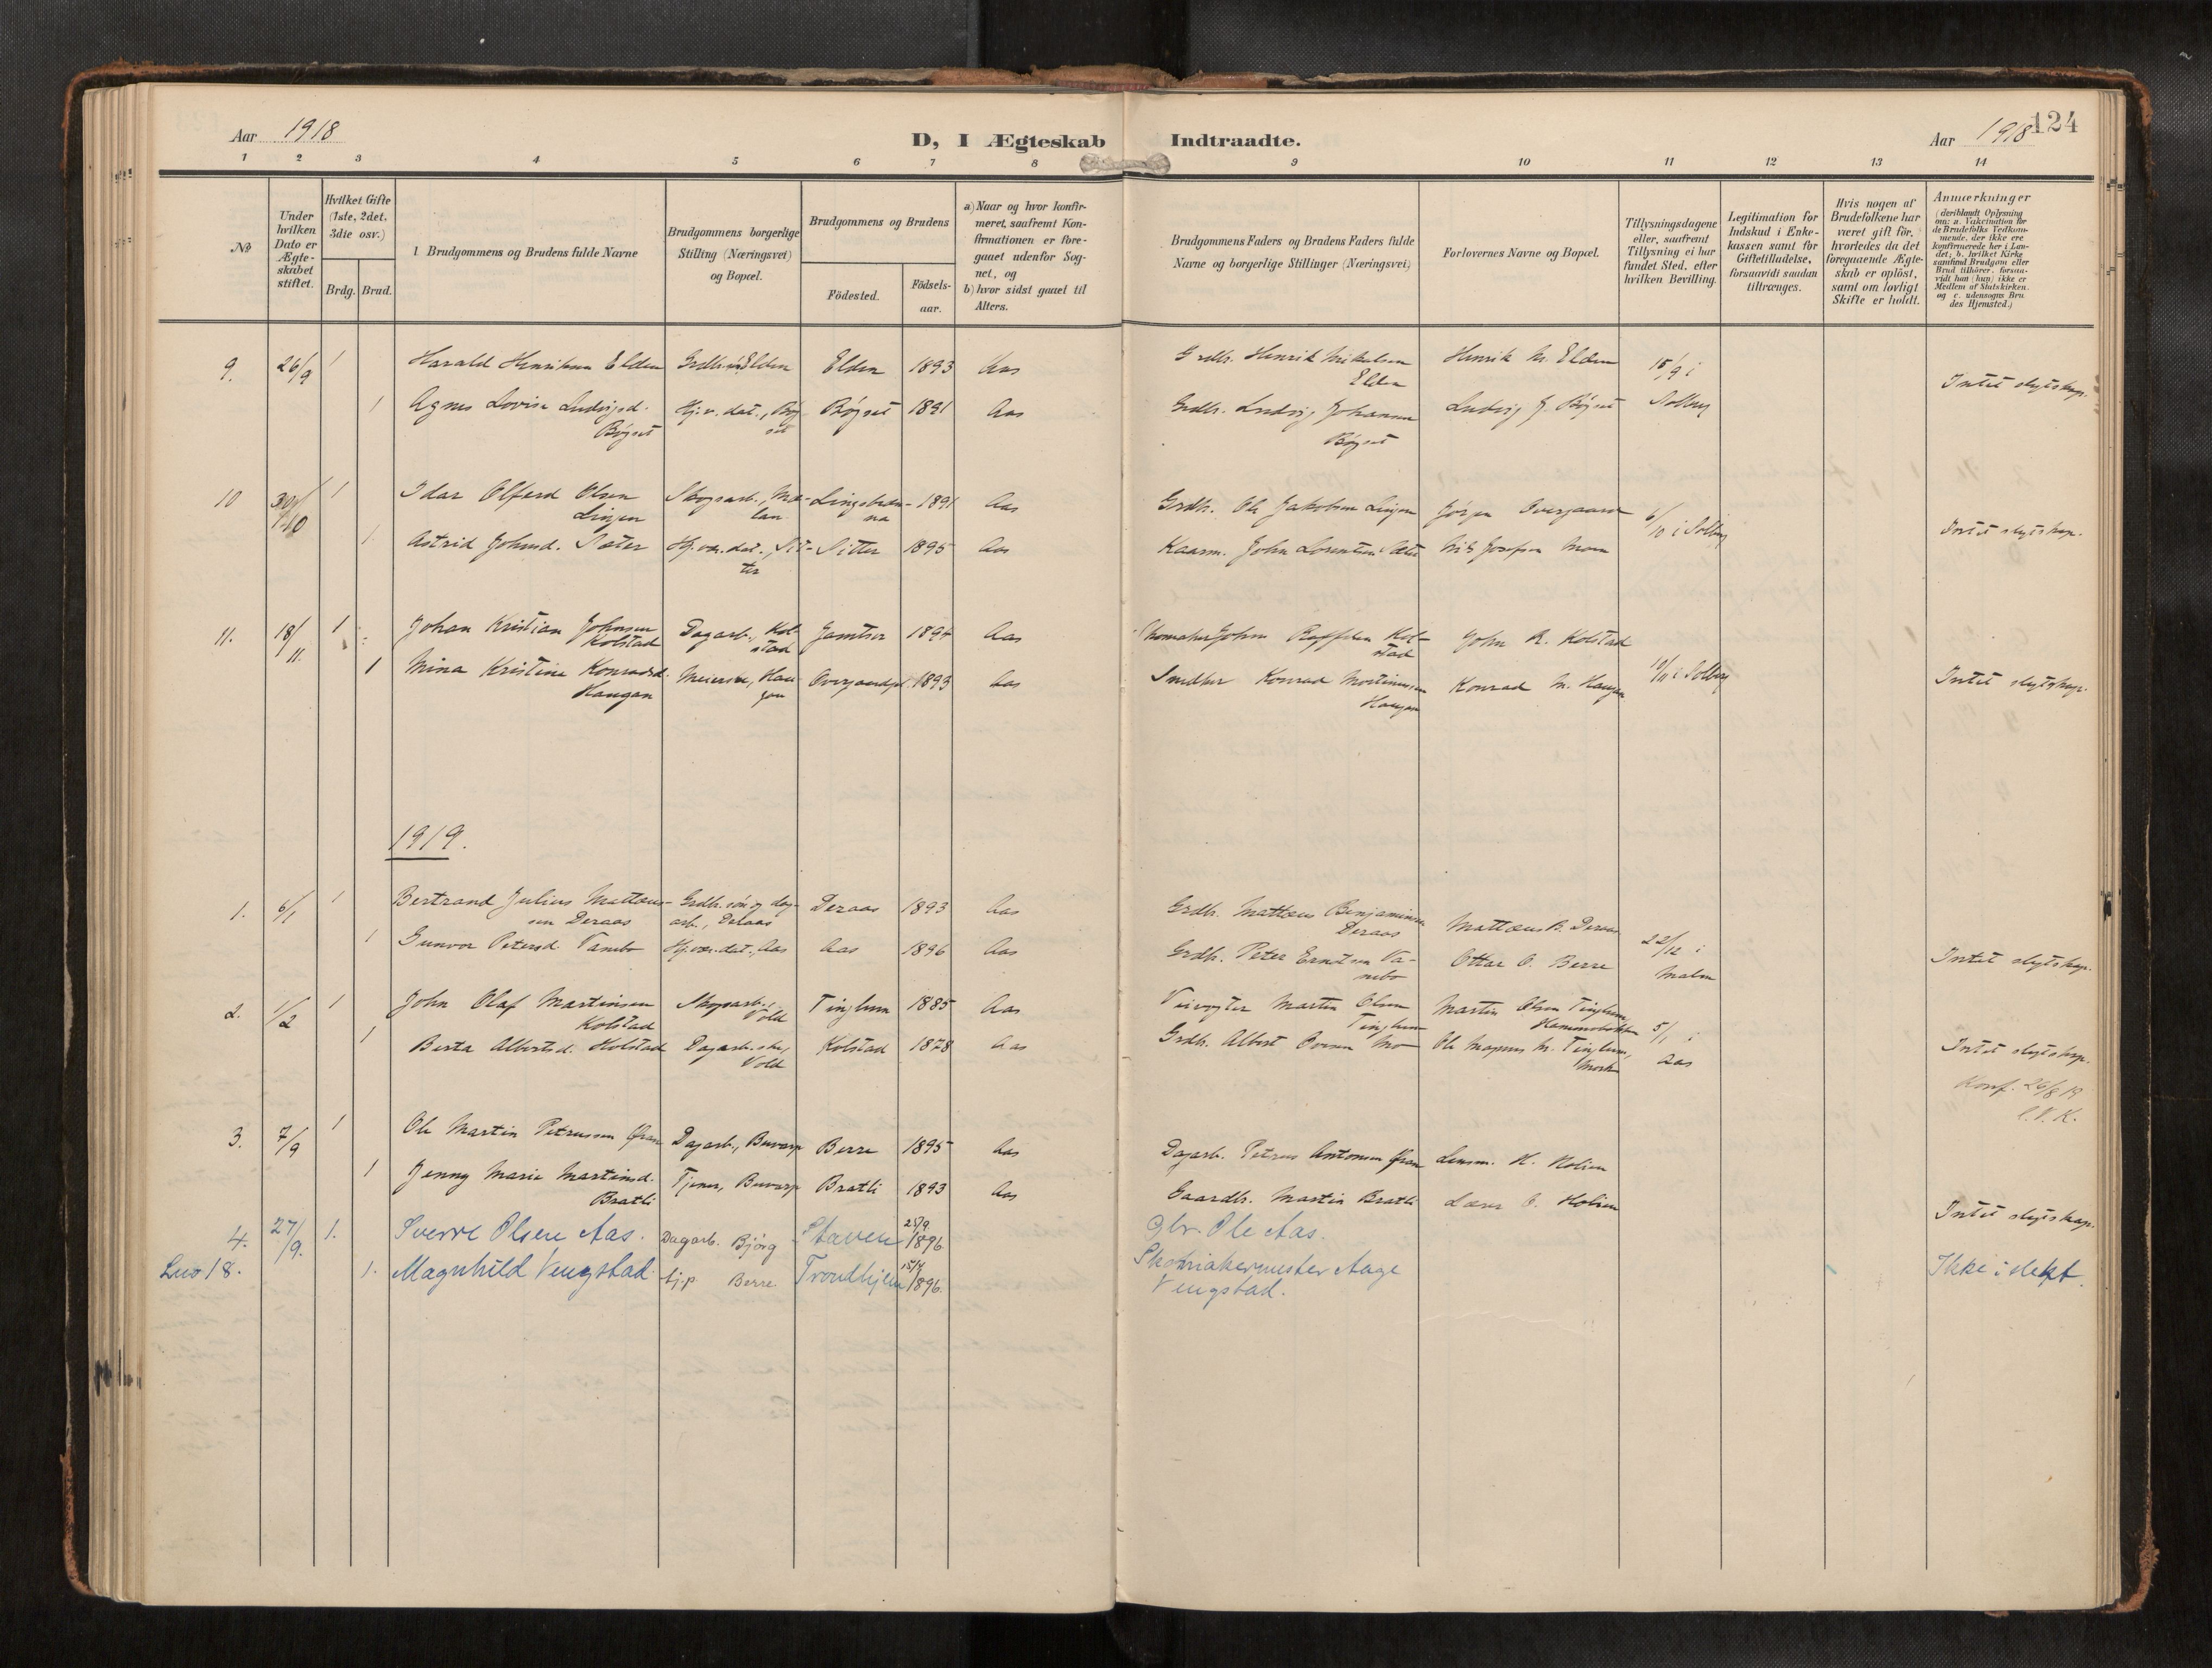 Aar 1918
D, I Ægteskab Indtraadte.
Aar 1918
124
1 2 3 4 5 6 7 8 9 10 11 12 13 14
No
Under hvilken Dato er Ægteskabet stiftet.
Hvilket Gifte (1ste, 2det, 3die osv.)
Brdg. Brud.
Brudgommens og Brudens fulde Navne
Brudgommens borgerlige Stilling (Næringsvei) og Bopæl.
Brudgommens og Brudens
Födested.
Födsels-aar.
a) Naar og hvor konfir-
meret, saafremt Kon-
firmationen er fore-
gaaet udenfor Sog-
net, og
b) hvor sidst gaaet til
Alters.
Brudgommens Faders og Brudens Faders fulde
Navne og borgerlige Stillinger (Næringsvei)
Forlovernes Navne og Bopæl.
Tillysningsdagene
eller, saafremt
Tillysning ei har
fundet Sted, efter
hvilken Bevilling.
Legitimation for
Indskud i Enke-
kassen samt for
Giftetilladelse,
forsaavidt saadan
tiltrænges.
Hvis nogen af
Brudefolkene har
været gift för,
hvorledes da det
foregaaende Ægte-
skab er oplöst,
samt om lovligt
Skifte er holdt.
Anmærkninger
(deriblandt Oplysning
om: a. Vakcination for
de Brudefolks Vedkom-
mende, der ikke ere
konfirmerede her i Lan-
det; b. hvilket Kirke
samfund Brudgom eller
Brud tilhörer, forsaa-
vidt han (hun) ikke er
Medlem af Statskirken,
og c. udensogns Bru
des Hjemsted.)
9. 26/9 1 Harald Henriksen Elden Grdbr.s. Elden Elden 1893 Aas Grdbr. Henrik Mikalsen Elden Henrik M. Elden 15/9 i
1 Agnes Lovise Ludvigsd. Bøgset Hj.v. dat., Bøgset Bøgset 1891 Aas Grdbr. Ludvig Johansen Bøgset Ludvig J. Bøgset Solberg Intet slegtskap.
10 30/10 1 Idar Olferd Olsen Lingen Skogsarb., Lingsbakna 1891 Aas Grdbr. Ole Jakobsen Lingen Jørgen Overgaard 6/10 i Solberg
1. Astrid Johnsd. Sæter Hj.vær.dat., Sitter Sitter 1895 Aas Kaarm. John Lorentsen Sæter Nils Josefsen Moen Intet slegtskap.
11. 18/11. 1 Johan Kristian Johnsen Kolstad Dagarb., Kolstad Jamtser 1894 Aas Skomaker John Kolstad John R. Kolstad
1 Mina Kristine Konradsd. Haugan Meierske, Haugan 1893 Aas Snidker Konrad Mortinussen Haugan Konrad M. Haugan 10/11 i Solberg Intet slegtskap.
1919.
1. 6/1 1 Bertrand Julius Mattæussen Deraas Grdbr. søn og dagarb., Deraas Deraas 1893 Aas Grdbr. Mattæus Benjaminsen Deraas Mattæus B. Deraas 22/12 i
1 Gunvor Petersd. Vanebo Hj.vær.dat., Aas Aas 1896 Aas Grdbr. Peter Erntsen Vanebo Ottar O. Berre Malm Intet slegtskap.
2. 1/2 1 John Olaf Martinsen Kolstad Skogsarb., Vold Tinglum 1885 Aas Veivogter Martin Olsen Tinglum Martin Olsen Tinglum, 5/1 i
1 Berta Albertsd. Kolstad Dagarb.ske, Vold Kolstad 1878 Aas Grdbr. Albert Ovesen Mo Ole Magnus M. Tinglum, Aas Intet slegtskap.
Konf. 26/8 19
3. 7/9 1 Ole Martin Petrussen Gran Dagarb., Buvarp Berre 1895 Aas Dagarb. Petrus Antonsen Gran Lensm. H. Holien
1 Jenny Marie Martinsd. Bratli Tjener, Buvarp Bratli 1893 Aas Gaardbr. Martin Bratli Lærer O. Holien Intet slegtskap.
4. 27/9. 1. Sverre Olsen Aas. Dagarb. Bjørg Staven 25/9 1896 Gbr. Ole Aas.
1. Magnhild Vengstad tj.p. Berre Trondhjem 15/4 1896. Skomakermester Aage Vengstad. Ikke i slekt.